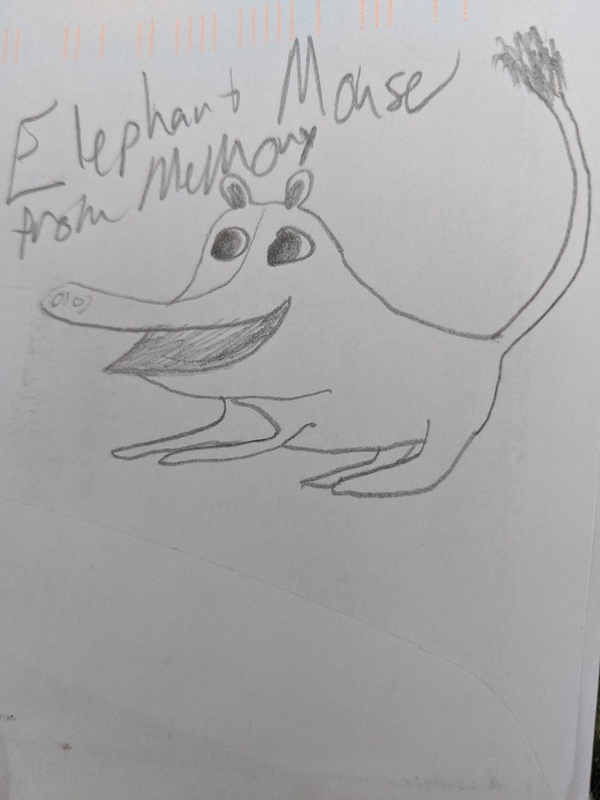 Elephant Mouse
from Memory